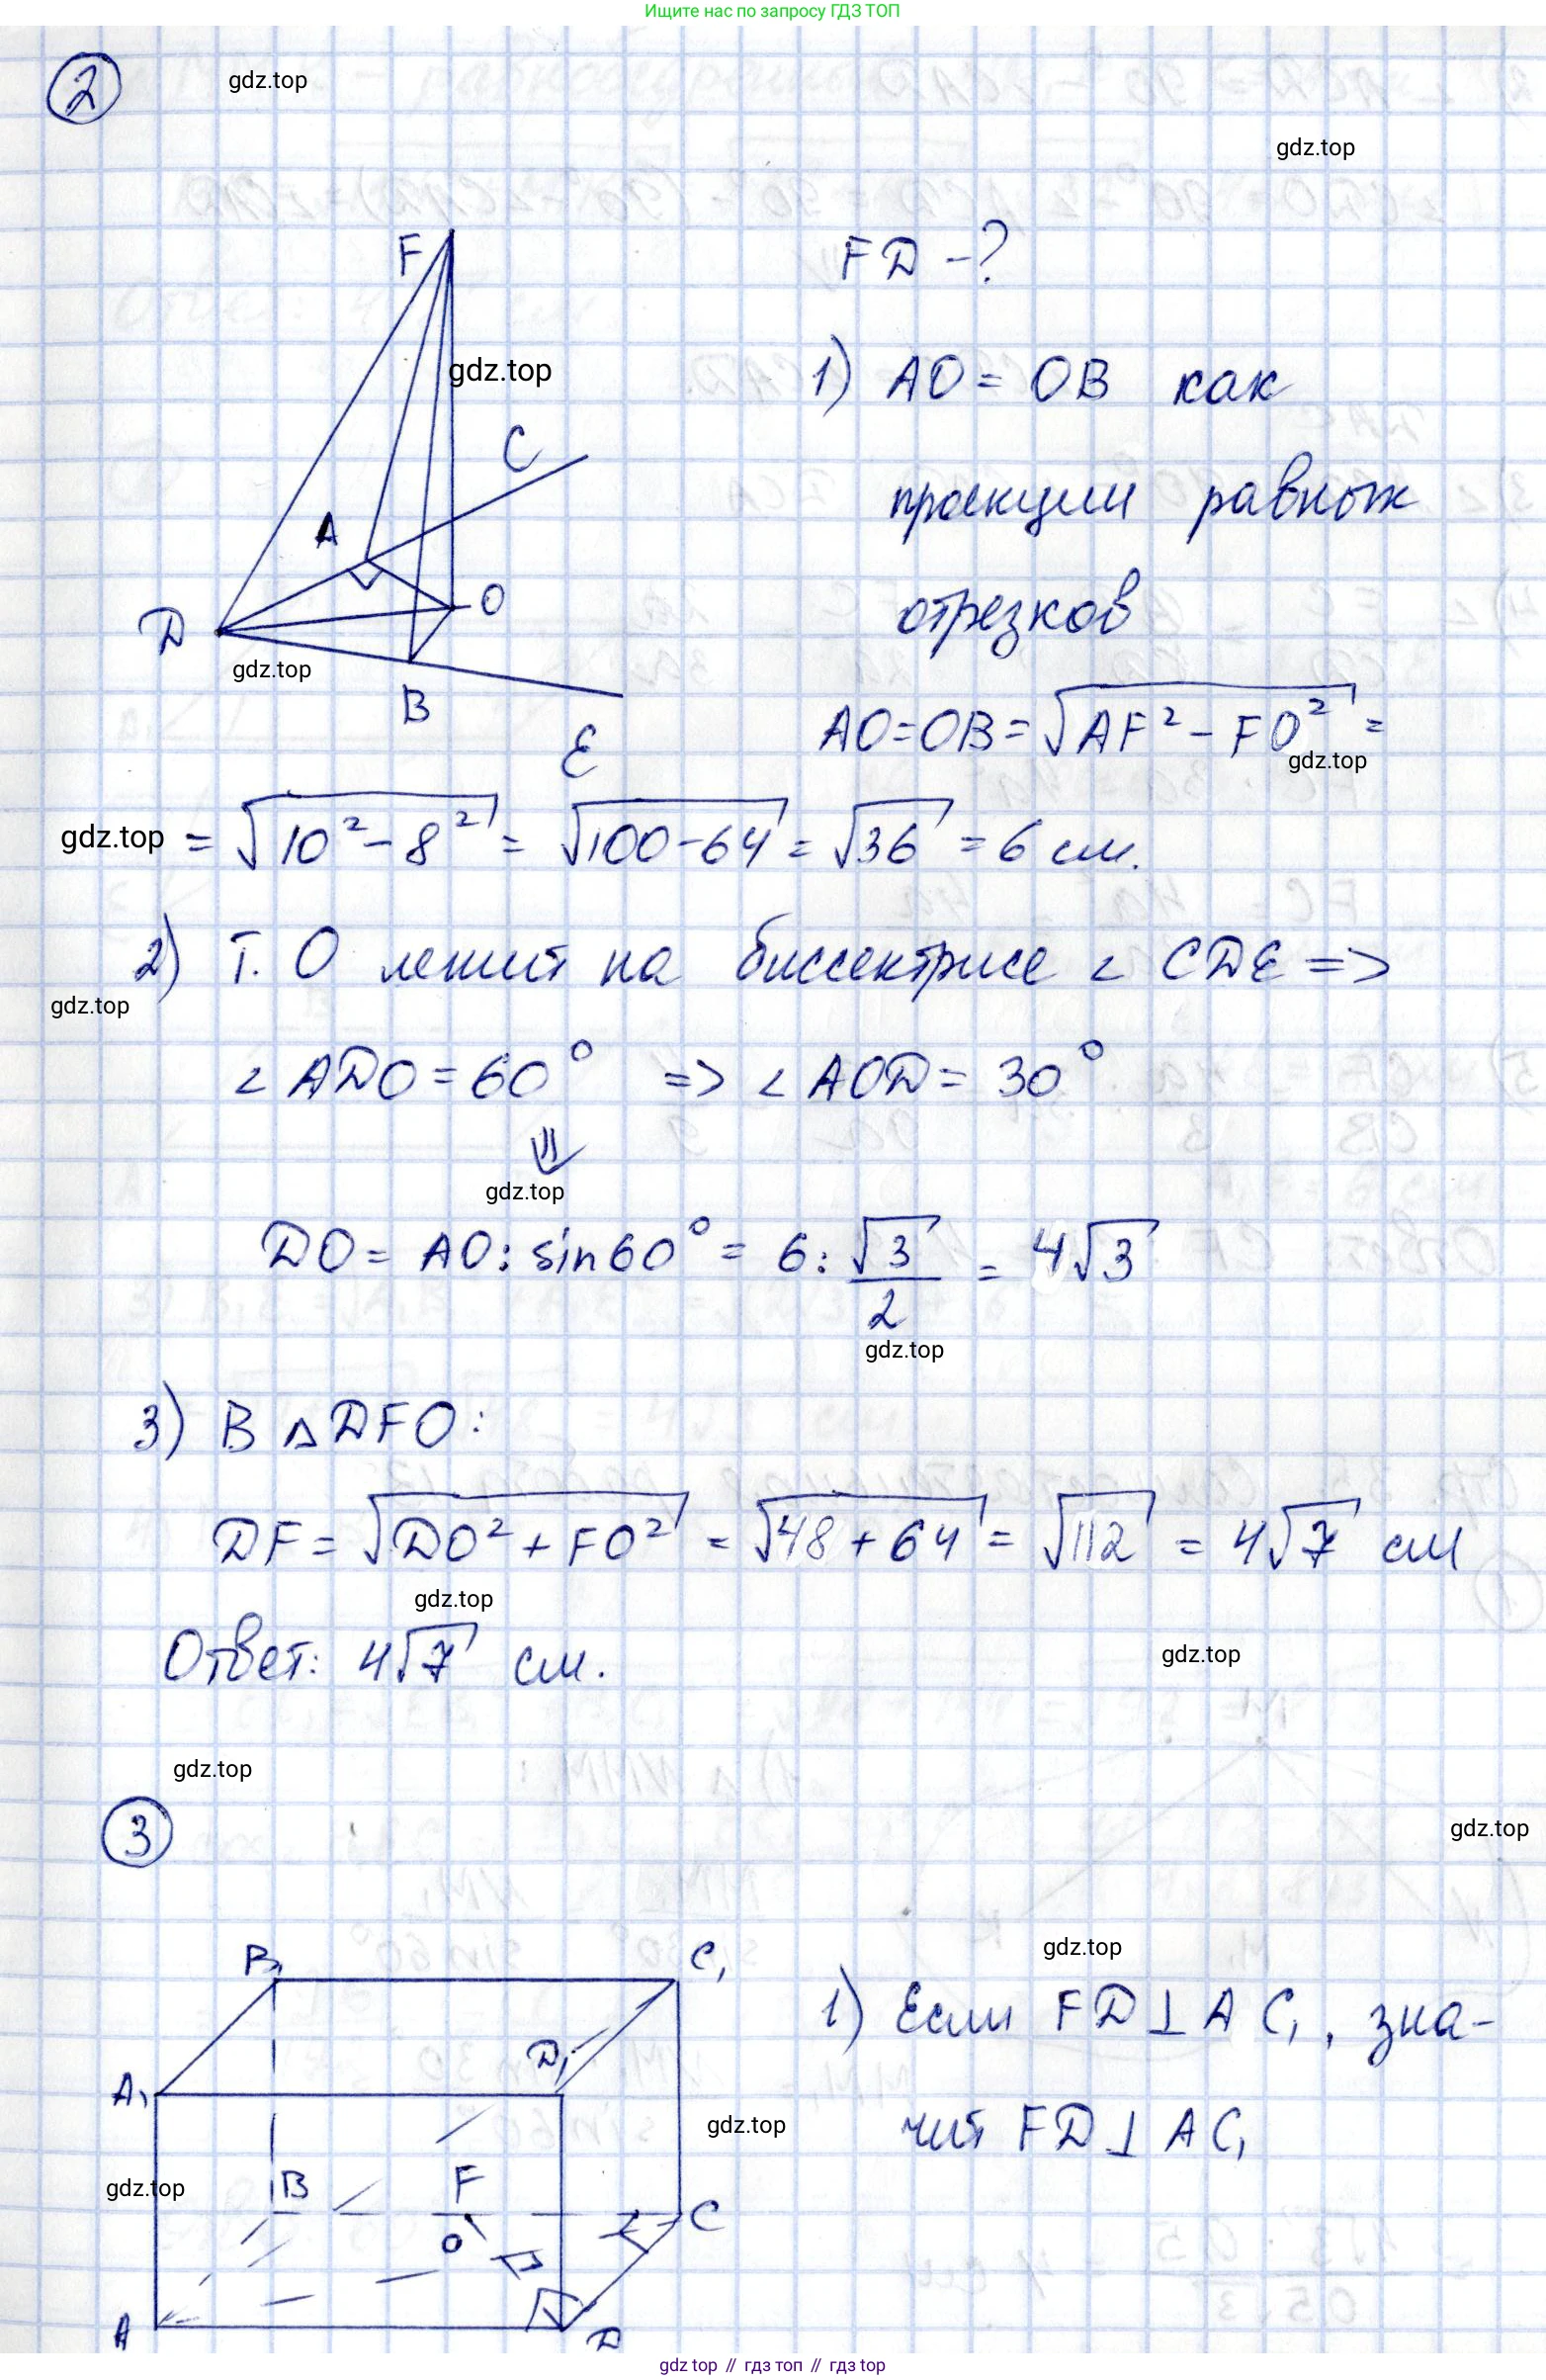 Ищите нас по запросу ГДЗ ТОП
2
gdz.top
gdz.top
F
FD -?
gdz.top
1) AO = OB как
C
проекции равных
A
отрезков
D
O
gdz.top
B
E
AO = OB = √(AF² - FO²) =
gdz.top
gdz.top
= √(10² - 8²) = √(100-64) = √36 = 6 см.
2) т. O лежит на биссектрисе ∠ CDE =>
gdz.top
∠ ADO = 60° => ∠ AOD = 30°
⇓
gdz.top
DO = AO : sin60° = 6 : √3/2 = 4√3
gdz.top
3) В △ DFO:
DF = √(DO² + FO²) = √(48 + 64) = √112 = 4√7 см
gdz.top
Ответ: 4√7 см.
gdz.top
gdz.top
3
gdz.top
gdz.top
B₁
C₁
1) Если FD ⊥ AC₁, зна-
D₁
A₁
чит FD ⊥ AC₁
gdz.top
gdz.top
B
F
C
O
A
D
gdz.top // гдз топ // gdz.top